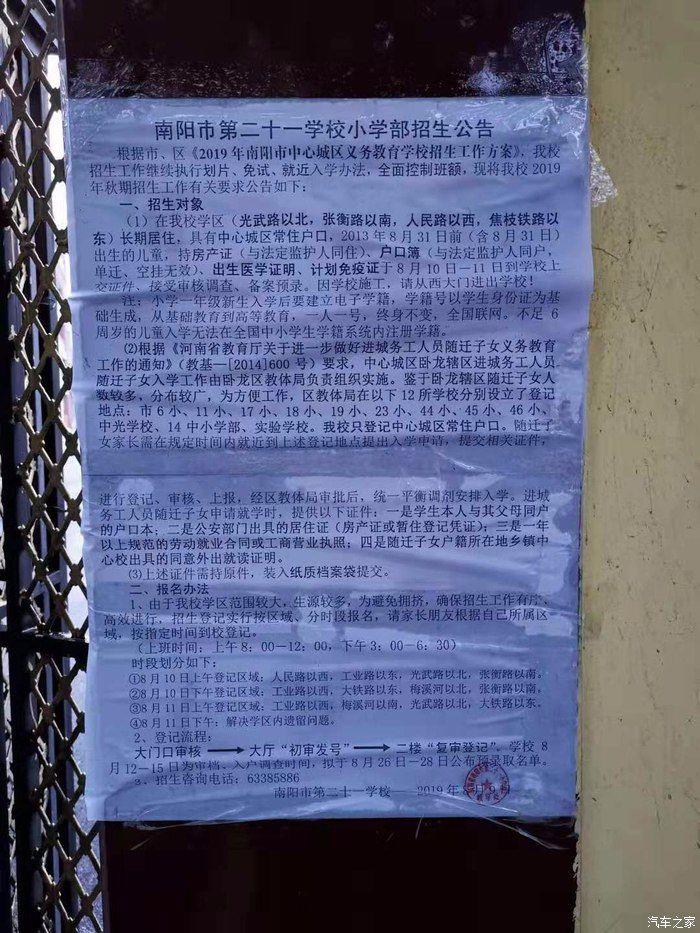 南阳市第二十一学校小学部招生公告
根据市、区《2019年南阳市中心城区义务教育学校招生工作方案》，我校
招生工作继续执行划片、免试、就近入学办法，全面控制班额，现将我校2019
年秋期招生工作有关要求公告如下：
一、招生对象
（1）在我校学区（光武路以北，张衡路以南，人民路以西，焦枝铁路以
东）长期居住，具有中心城区常住户口，2013年8月31日前（含8月31日）
出生的儿童，持房产证（与法定监护人同住）、户口簿（与法定监护人同户，
单迁、空挂无效）、出生医学证明、计划免疫证于8月10日—11日到学校上
交证件、接受审核调查、备案预录。因学校施工，请从西大门进出学校！
注：小学一年级新生入学后要建立电子学籍，学籍号以学生身份证为基
础生成，从基础教育到高等教育，一人一号，终身不变，全国联网。不足6
周岁的儿童入学无法在全国中小学生学籍系统内注册学籍。
⑵根据《河南省教育厅关于进一步做好进城务工人员随迁子女义务教育
工作的通知》（教基一[2014]600号）要求，中心城区卧龙辖区进城务工人员
随迁子女入学工作由卧龙区教体局负责组织实施。鉴于卧龙辖区随迁子女人
数较多，分布较广，为方便工作，区教体局在以下12所学校分别设立了登记
地点：市6小、11小、17小、18小、19小、23小、44小、45小、46小、
中光学校、14中小学部、实验学校。我校只登记中心城区常住户口。随迁子
女家长需在规定时间内就近到上述登记地点提出入学申请，提交相关证件，
进行登记、审核、上报，经区教体局审批后，统一平衡调剂安排入学。进城
务工人员随迁子女申请就学时，提供以下证件：一是学生本人与其父母同户
的户口本；二是公安部门出具的居住证（房产证或暂住登记凭证）；三是一年
以上规范的劳动就业合同或工商营业执照；四是随迁子女户籍所在地乡镇中
心校出具的同意外出就读证明。
⑶上述证件需持原件，装入纸质档案袋提交。
二、报名办法
1、由于我校学区范围较大，生源较多，为避免拥挤，确保招生工作有序，
高效进行，招生登记实行按区域、分时段报名，请家长朋友根据自己所属区
域，按指定时间到校登记。
（上班时间：上午8：00—12：00，下午3：00—6：30）
时段划分如下：
①8月10日上午登记区域：人民路以西，工业路以东，光武路以北，张衡路以南。
②8月10日下午登记区域：工业路以西，大铁路以东，梅溪河以北，张衡路以南。
③8月11日上午登记区域：工业路以西，梅溪河以南，光武路以北，大铁路以东。
④8月11日下午：解决学区内遗留问题。
2、登记流程：
大门口审核 → 大厅“初审发号” → 二楼“复审登记”。学校8
月12—15日为审档、入户调查时间，拟于8月26日—28日公布预录取名单。
3、招生咨询电话：63385886
南阳市第二十一学校 2019年
汽车之家